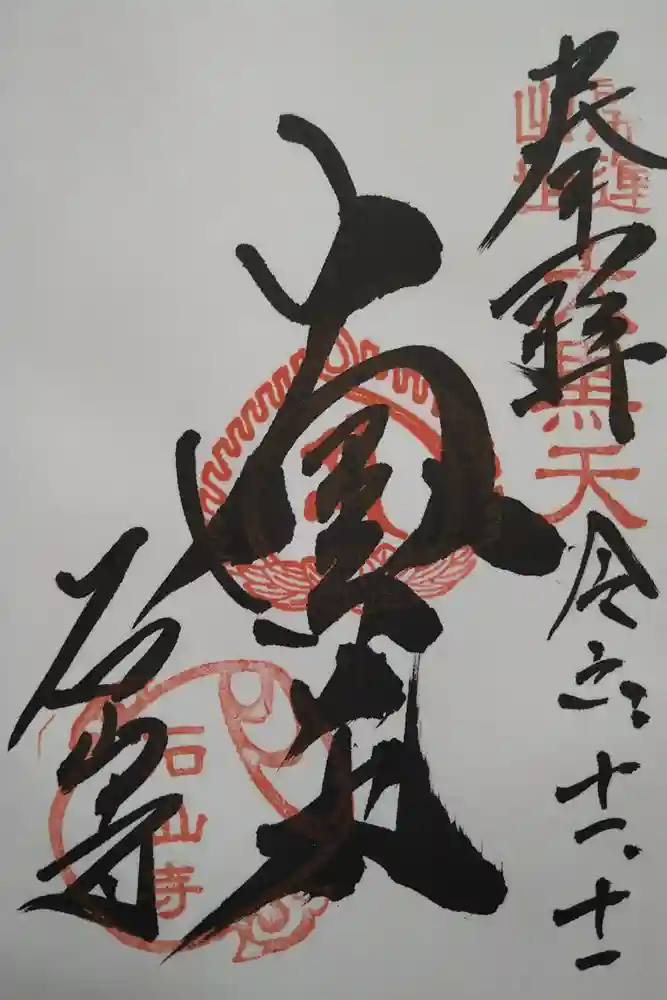 奉拝
令六、十一、十一
大黒天
大黒天
石山寺
石山寺